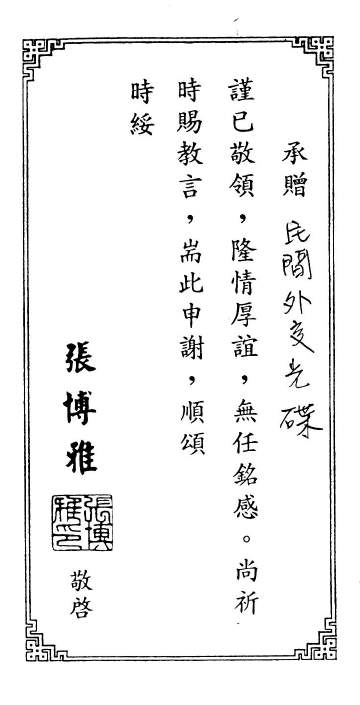 承贈 民間外交光碟
謹已敬領，隆情厚誼，無任銘感。尚祈
時賜教言，耑此申謝，順頌
時綏
張博雅
張博雅印
敬啓